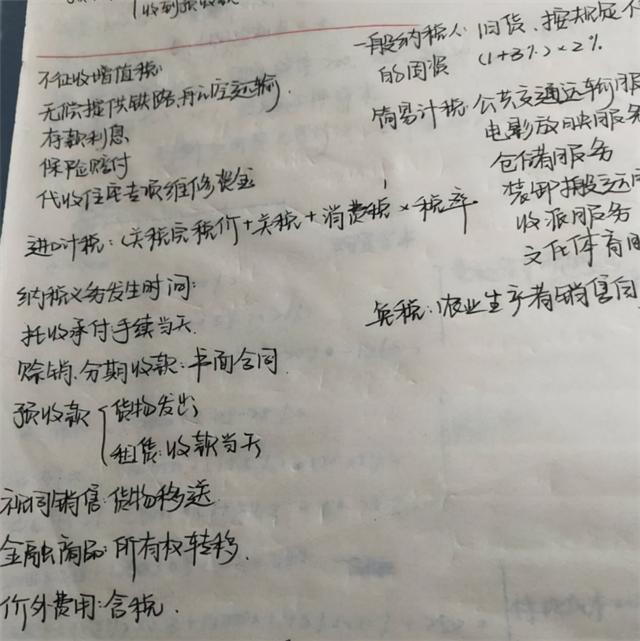 收到预收款
不征收增值税:
无偿提供铁路、航空运输.
存款利息
保险赔付
代收住宅专项维修资金
进口计税:(关税完税价+关税+消费税×税率
纳税义务发生时间:
托收承付手续当天.
赊销、分期收款:书面合同.
预收款 货物发出
租赁:收款当天
视同销售:货物移送.
金融商品:所有权转移.
价外费用:含税.
一般纳税人:旧货、按规定不
的固资 (1+3%)×2%
简易计税:公共交通运输服
电影放映服务
仓储服务
装卸搬运
收派服务
文化体育
免税:农业生产者销售自